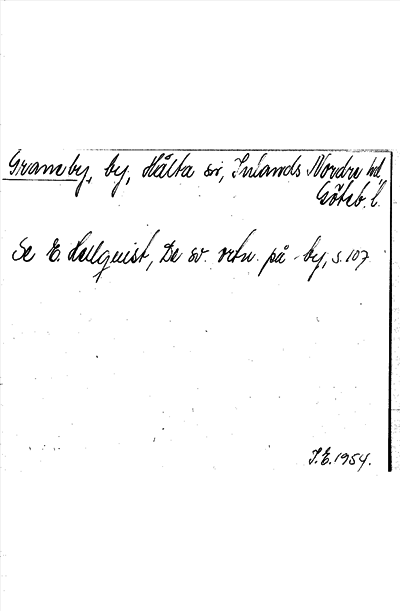 Gramby, by, Hålta sn, Inlands Nordre hd,
Göteb. l.
Se E. Hellquist, De sv. ortn. på -by, s. 107
I.E. 1954.